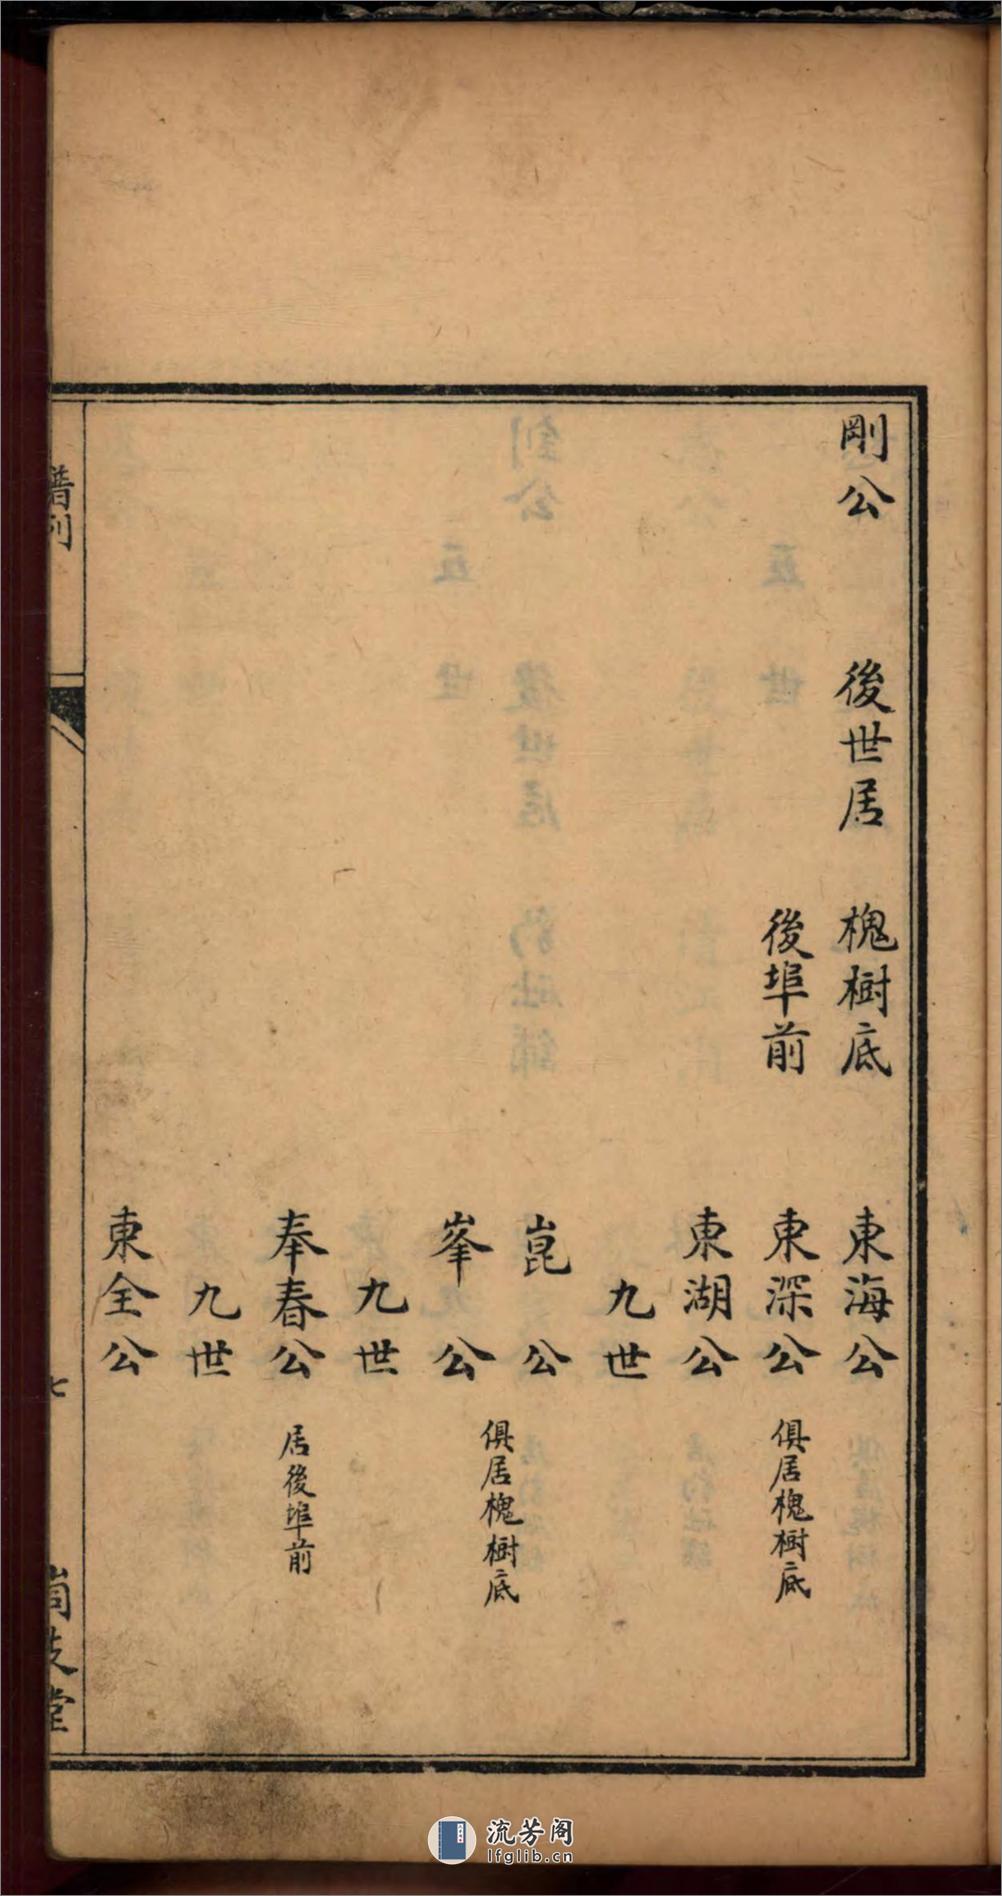 剛公 後世居 槐樹底 東海公
後埠前 東深公 俱居槐樹底
東湖公
九世
崑公
俱居槐樹底
峯公
九世
奉春公 居後埠前
九世
東全公
譜列 七
流芳阁
lfglib.cn